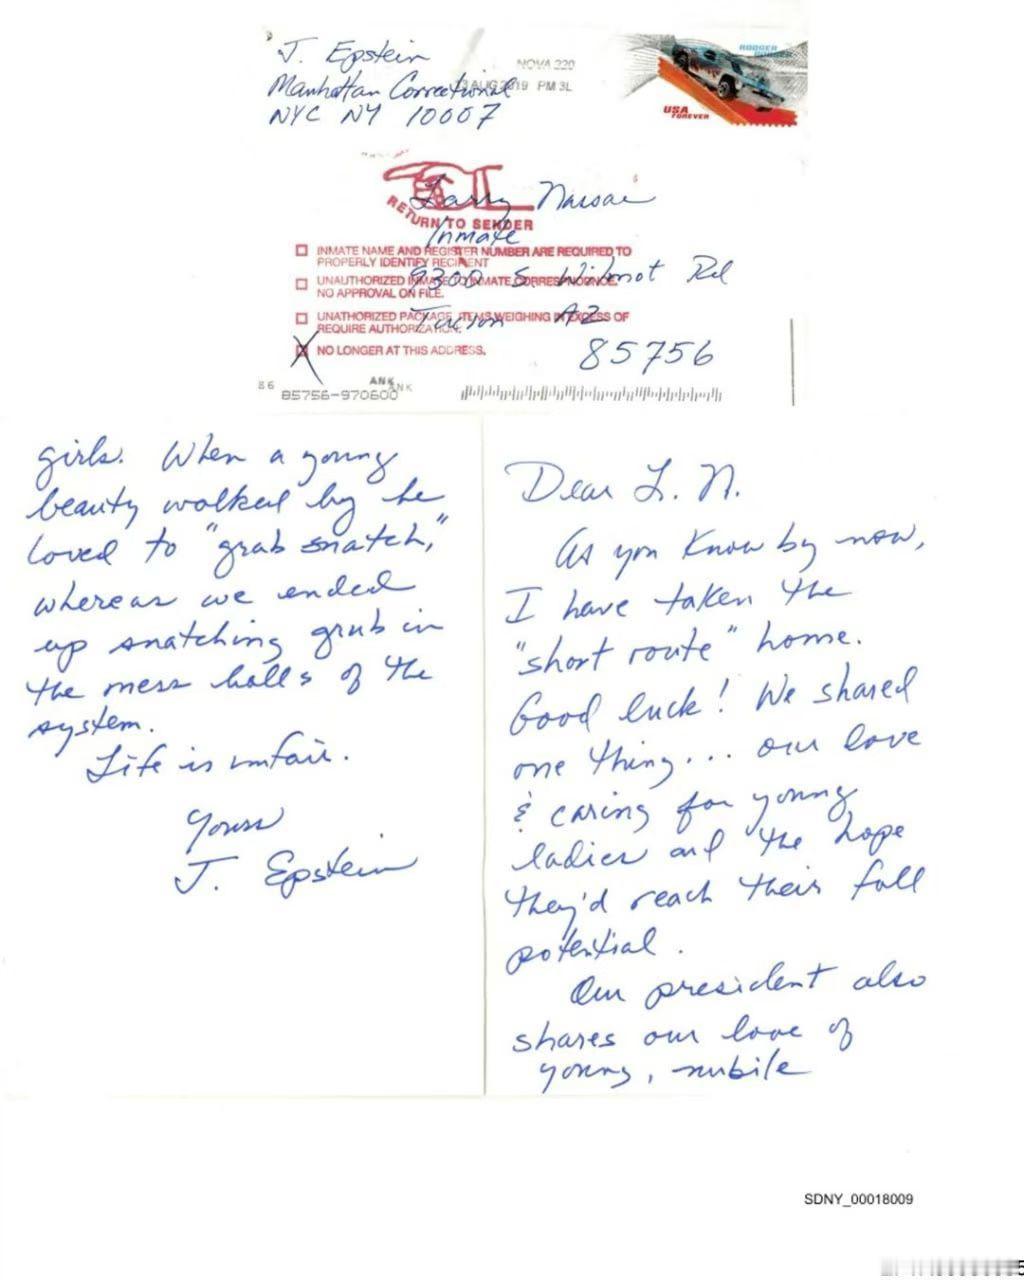 J. Epstein
Manhattan Correctional
NYC NY 10007
NOVA 220
AUG 2019 PM 3L
USA
FOREVER
Larry Nassar
RETURN TO SENDER
Inmate
INMATE NAME AND REGISTER NUMBER ARE REQUIRED TO
PROPERLY IDENTIFY RECIPIENT
9300 S. Wilmot Rd
UNAUTHORIZED INMATE TO INMATE CORRESPONDENCE.
NO APPROVAL ON FILE.
Tucson AZ
UNATHORIZED PACKAGE, ITEMS WEIGHING IN EXCESS OF
REQUIRE AUTHORIZATION.
X NO LONGER AT THIS ADDRESS.
85756
86
ANK
ANK
85756-970600
Dear L. N.
As you know by now,
I have taken the
"short route" home.
Good luck! We shared
one thing... our love
& caring for young
ladies and the hope
they'd reach their full
potential.
Our president also
shares our love of
young, nubile
girls. When a young
beauty walked by he
loved to "grab snatch,"
whereas we ended
up snatching grub in
the mess halls of the
system.
Life is unfair.
Yours
J. Epstein
SDNY_00018009